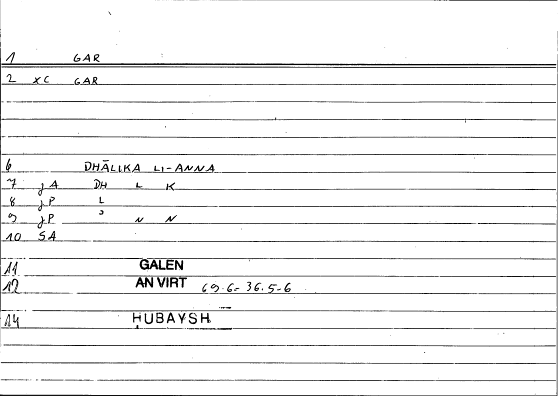 1 GAR
2 XC GAR
6 DHĀLIKA LI-ANNA
7 jA DH L K
8 jP L
9 jP ʾ N N
10 SA
11 GALEN
12 AN VIRT 69.6-36.5-6
14 ḤUBAYSH